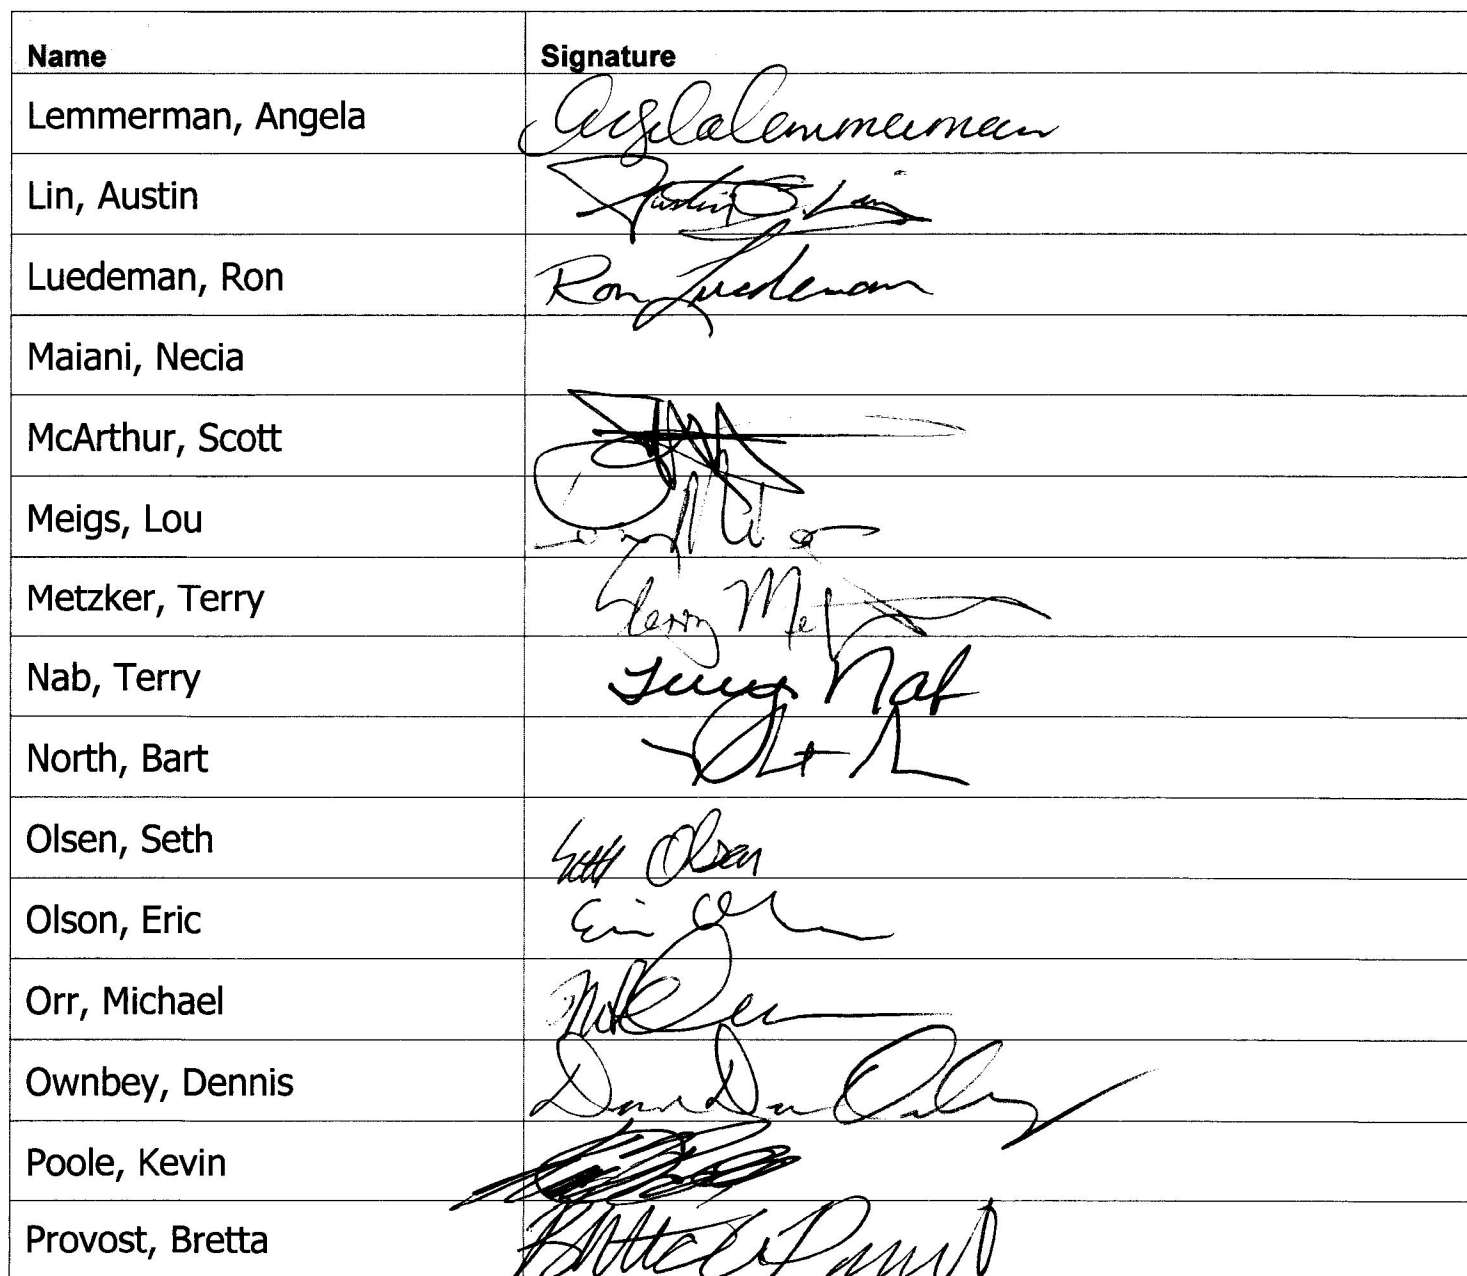 Name Signature
Lemmerman, Angela Angela Lemmerman
Lin, Austin Austin S. Lin
Luedeman, Ron Ron Luedeman
Maiani, Necia
McArthur, Scott
Meigs, Lou
Metzker, Terry Terry
Nab, Terry Terry Nab
North, Bart
Olsen, Seth Seth Olsen
Olson, Eric Eric
Orr, Michael
Ownbey, Dennis
Poole, Kevin
Provost, Bretta